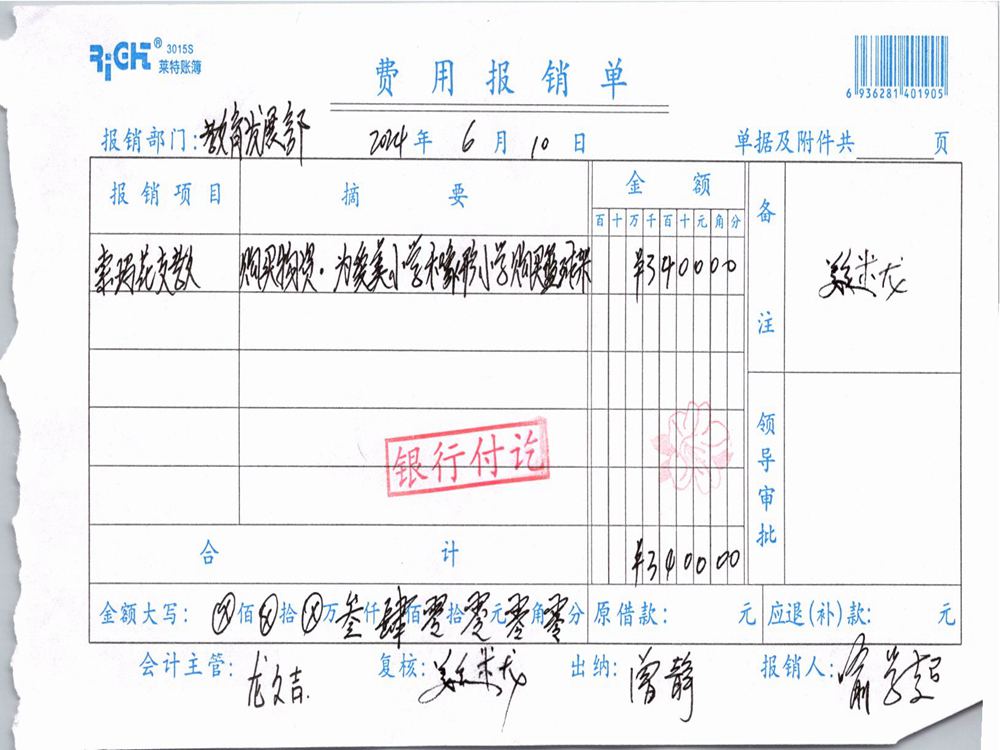 RiGHT® 3015S
莱特账簿
6 936281 401905
费用报销单
报销部门：教育发展部 2024年6月10日 单据及附件共 页
报销项目 摘要 金额 备注
百十万千百十元角分
索玛花支教 购买物资，为 美小学和 小学购买篮球架 ¥340000 姜米龙
银行付讫
领导审批
合计 ¥340000
金额大写：⊗佰⊗拾⊗万叁仟肆佰零拾零元零角零分 原借款： 元 应退(补)款： 元
会计主管：龙文吉 复核：姜米龙 出纳：曾静 报销人：